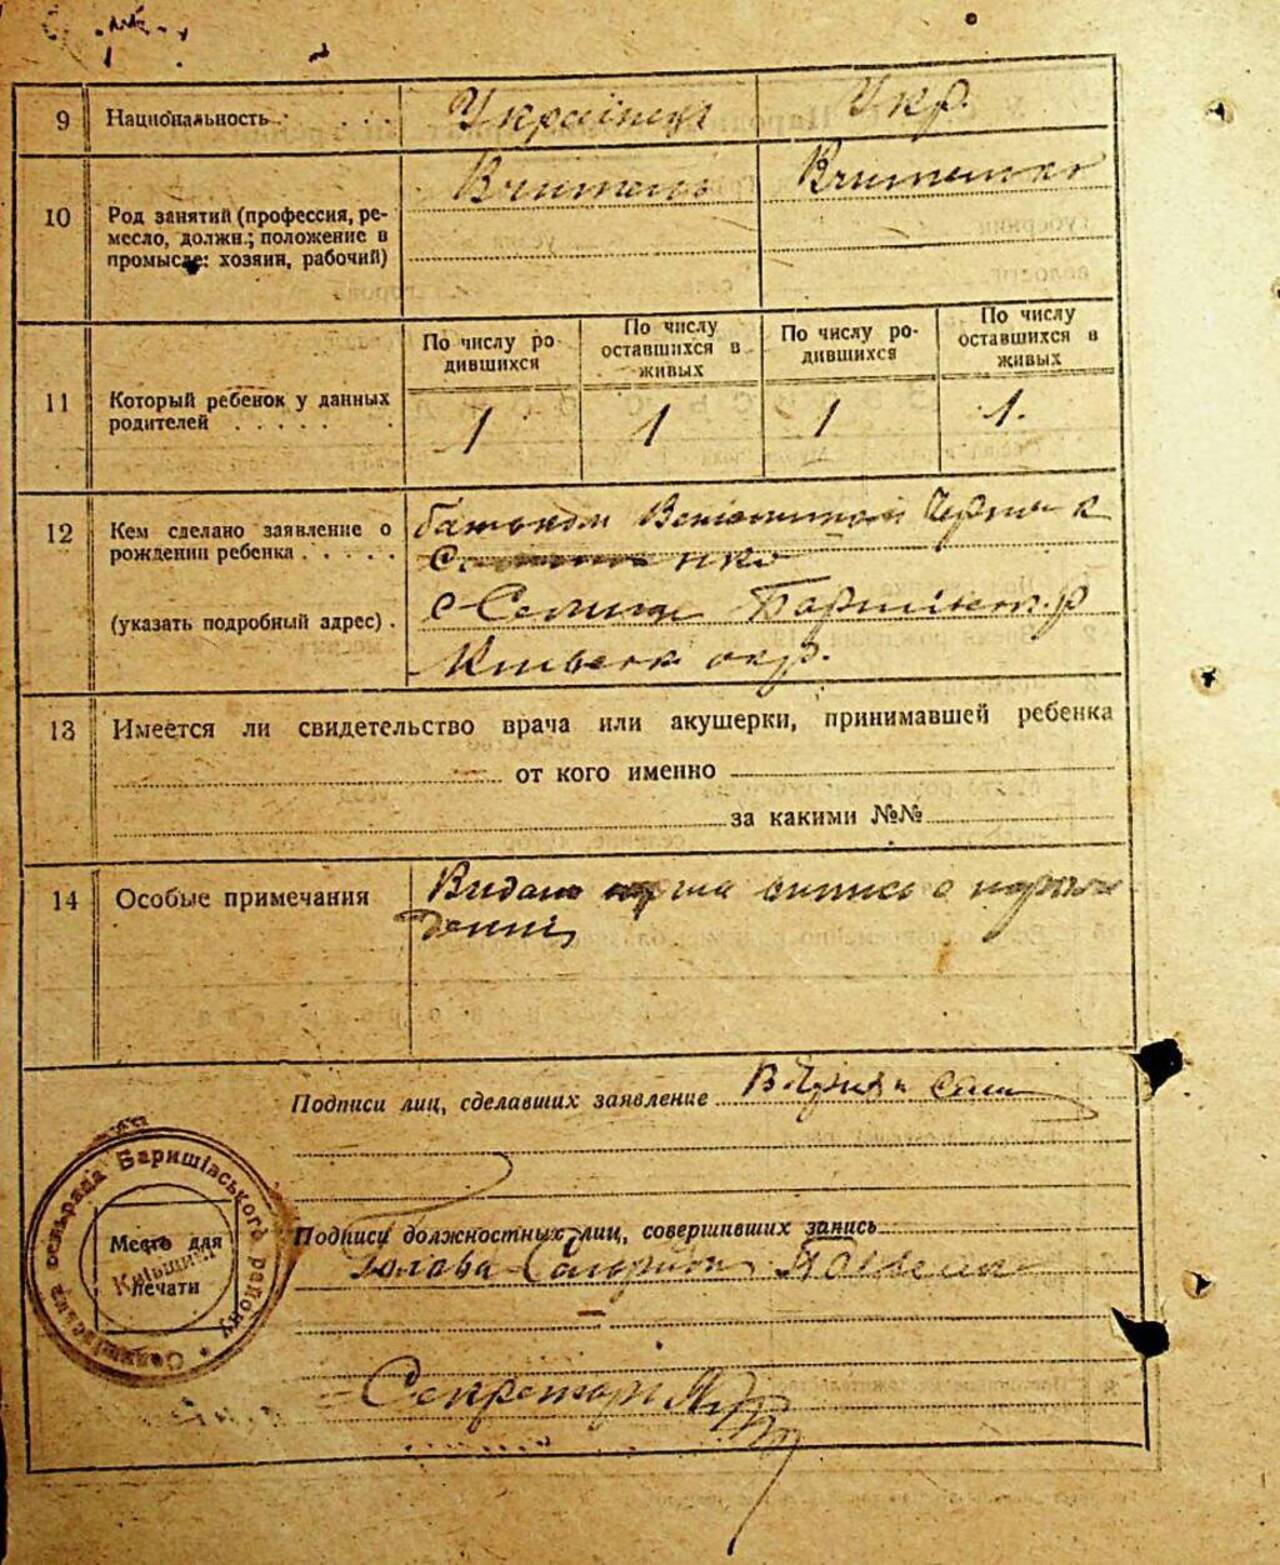 9 Национальность Українец Укр.
10 Род занятий (профессия, ре-
месло, должн.; положение в
промысле: хозяин, рабочий)
Вчитель Вчителька
11 Который ребенок у данных
родителей
По числу ро-
дившихся
По числу
оставшихся в
живых
По числу ро-
дившихся
По числу
оставшихся в
живых
1 1 1 1.
12 Кем сделано заявление о
рождении ребенка
(указать подробный адрес).
батьком
нко
с Селище Баришівск. р
Київськ окр.
13 Имеется ли свидетельство врача или акушерки, принимавшей ребенка
от кого именно
за какими №№
14 Особые примечания
Видано перша випись о народж
денні
Подписи лиц, сделавших заявление
Подписи должностных лиц, совершивших запись
Голова
Секретарь
Баришівського району
Место для
печати
Київщині